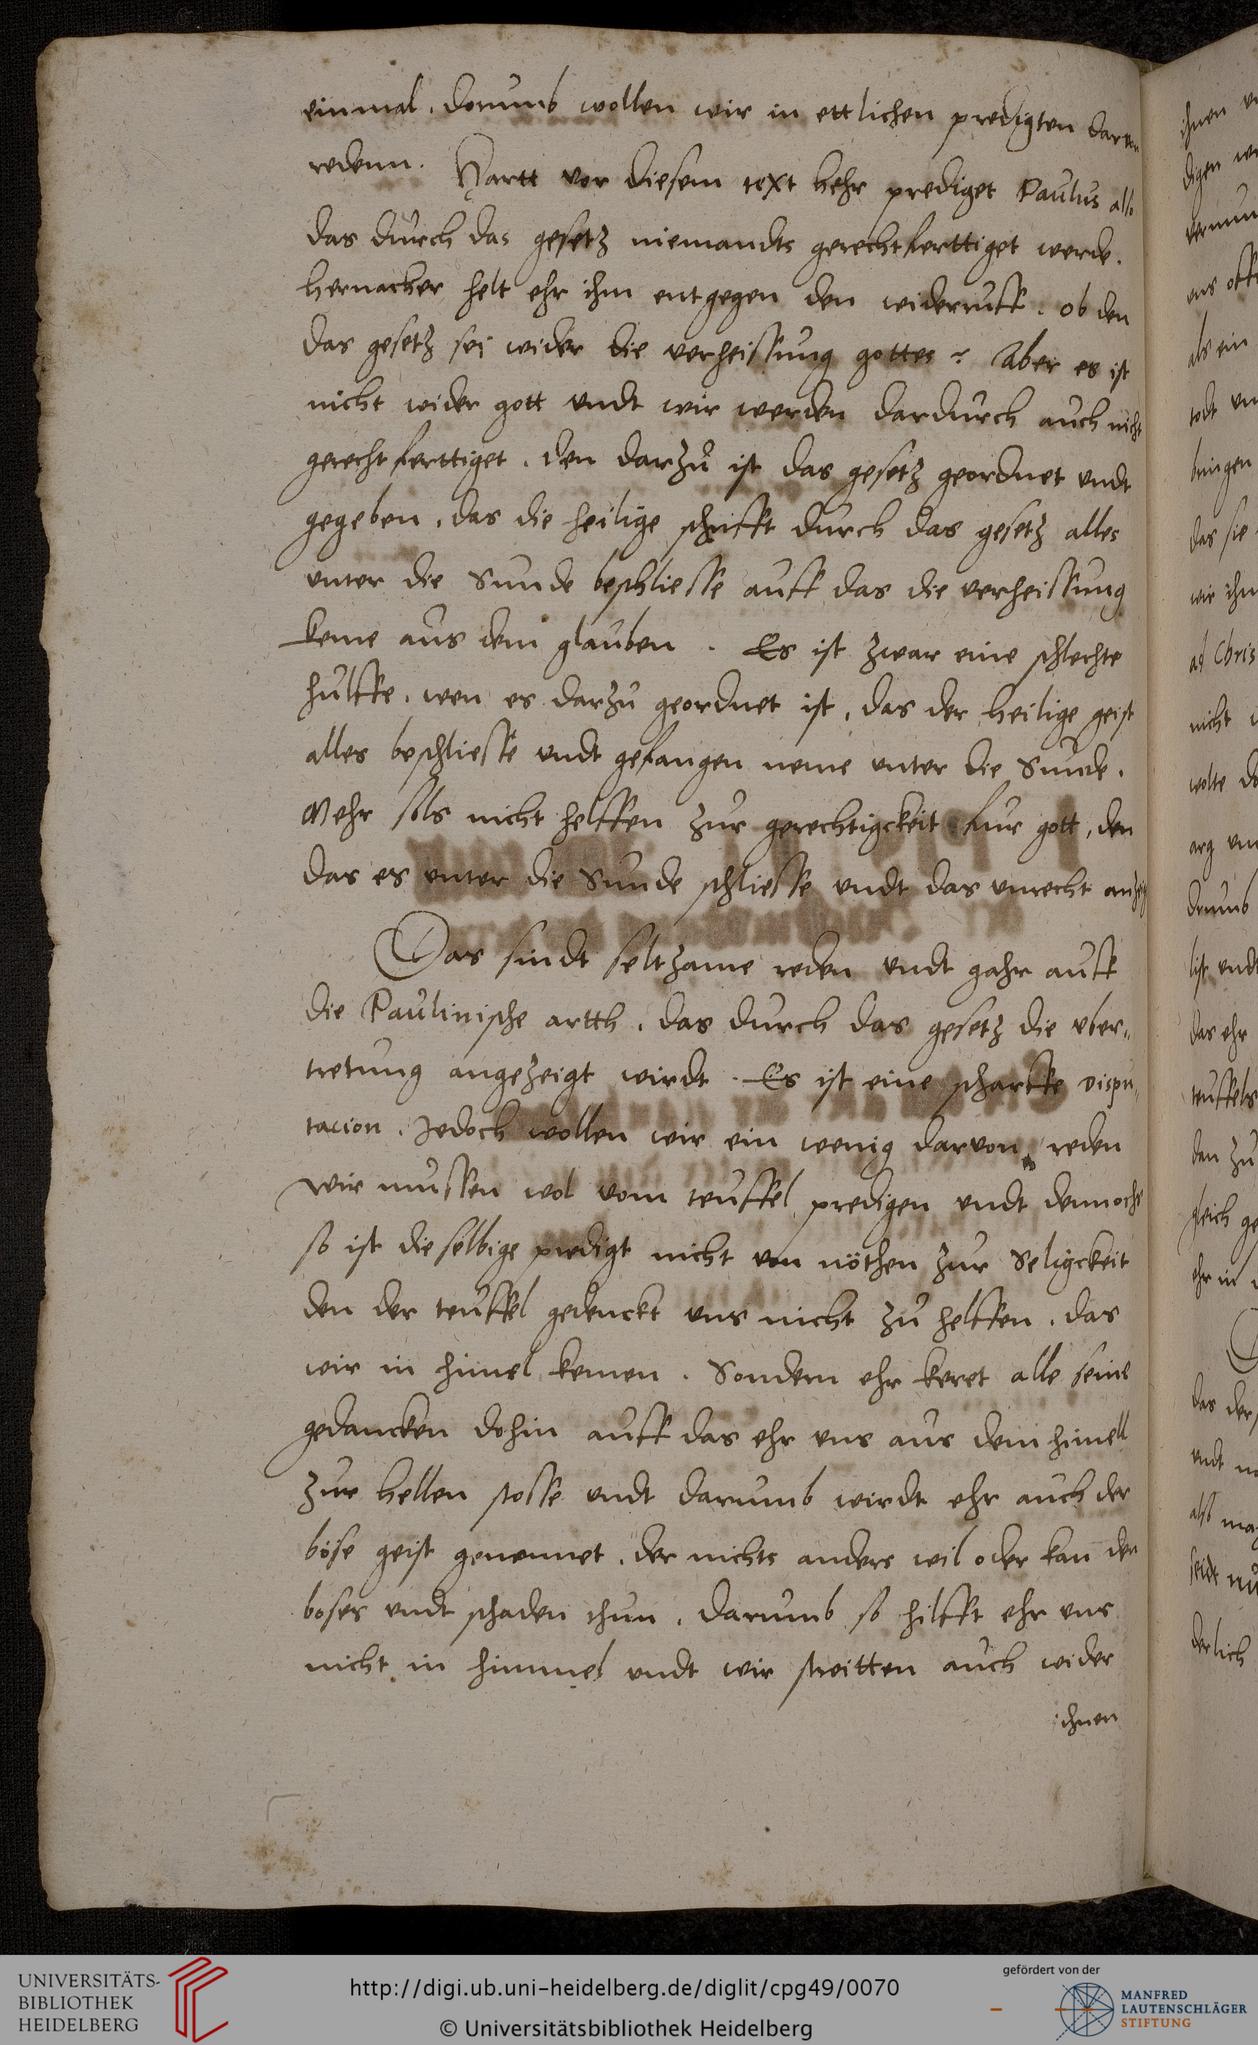 einmal. dorumb wollen wir in ettlichen predigten darvon
redenn. Hartt vor diesem text hehr prediget Paulus also
das durch das gesetz niemandts gerechtferttiget werde.
hernacher helt ehr ihm entgegen den widerruff. ob den
das gesetz sei wider die verheissung gottes? Aber es ist
nicht wider gott undt wir werden dardurch auch nicht
gerechtferttiget. den darzu ist das gesetz geordnet undt
gegeben, das die heilige schrifft durch das gesetz alles
unter die Sunde beschliesse auff das die verheissung
keme aus dem glauben. Es ist zwar eine schlechte
hulffe, wen es darzu geordnet ist, das der heilige geist
alles beschliesse undt gefangen neme unter die Sunde.
Mehr sols nicht helffen zur gerechtigckeit fur gott, den
das es unter die Sunde schliesse undt das unrecht anzeig
Das sindt seltzame reden undt gahr auff
die Paulinische artth, das durch das gesetz die uber-
tretung angezeigt wirdt. Es ist eine scharffe dispu-
tacion. Jedoch wollen wir ein wenig darvon reden
wir mussen wol vom teuffel predigen undt dennoch
so ist dieselbige predigt nicht von nöthen zur Seligckeit
den der teuffel gedenckt uns nicht zu helffen, das
wir in himel kemen. Sondern ehr keret alle seine
gedancken dohin auff das ehr uns aus dem himell
zur hellen stosse undt darumb wirdt ehr auch der
böse geist genennet, der nichts anders wil oder kan den
boses undt schaden thun. darumb so hilfft ehr uns
nicht in himmel undt wir streitten auch wider
ihnen
ihnen
digen
uns
als ein
todt
bringen
das sie
wir ihn
ad Chris
nicht
wolte
arg
drumb
list undt
das ehr
teuffels
den zu
gleich
ehr in
das der
undt
also
seidt
derlich
UNIVERSITÄTS-
BIBLIOTHEK
HEIDELBERG
http://digi.ub.uni-heidelberg.de/diglit/cpg49/0070
© Universitätsbibliothek Heidelberg
gefördert von der
MANFRED
LAUTENSCHLÄGER
STIFTUNG